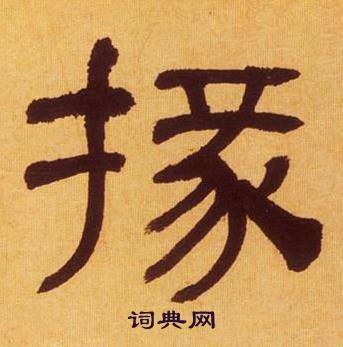 掾
词典网